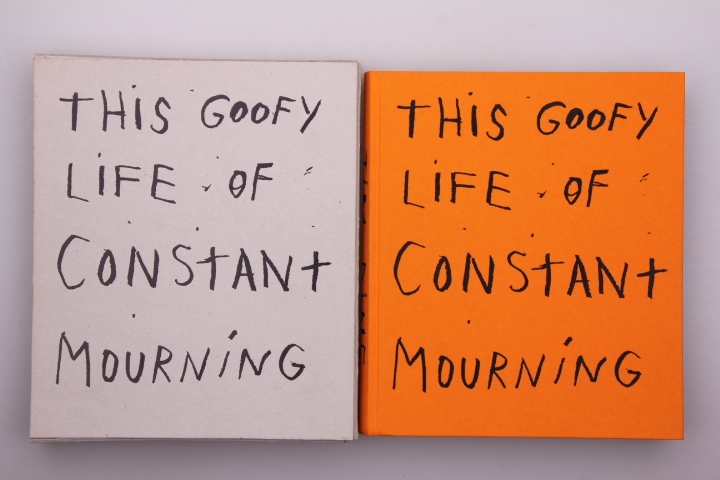 THiS GOOFY
LiFE OF
CONSTANT
MOURNiNG
THiS GOOFY
LiFE OF
CONSTANT
MOURNiNG